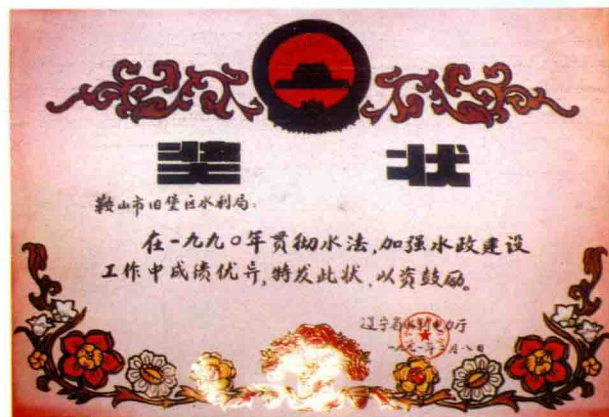 奖 状
鞍山市旧堡区水利局:
在一九九〇年贯彻水法,加强水政建设
工作中成绩优异,特发此状,以资鼓励。
辽宁省水利电力厅